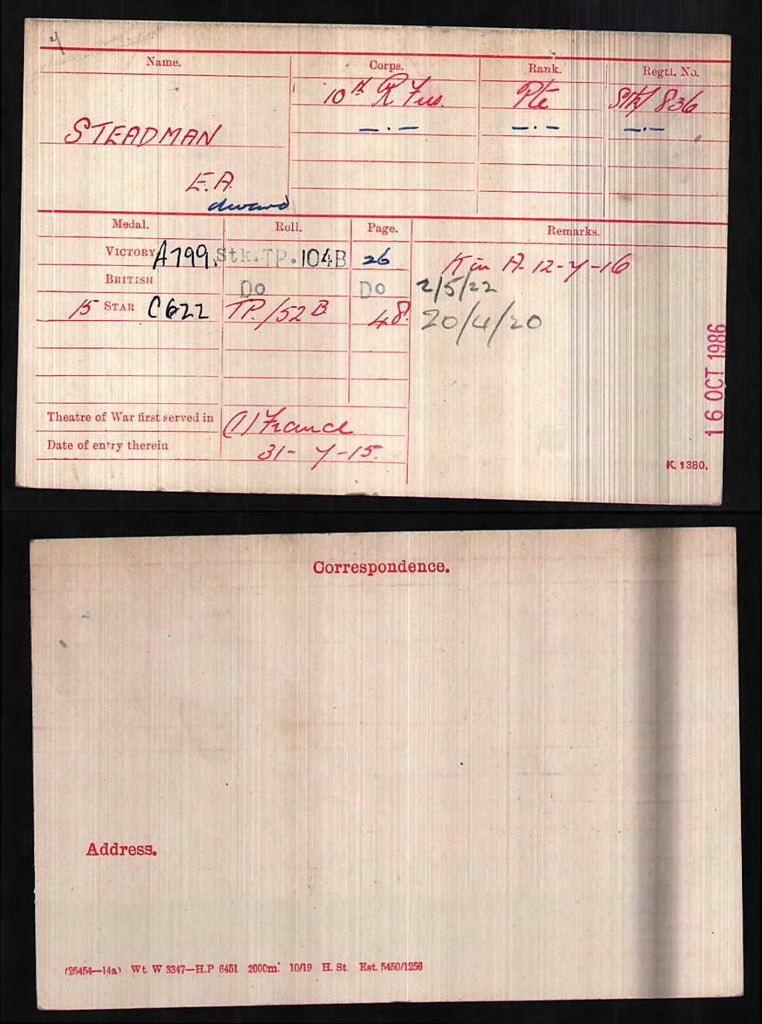 Name. Corps. Rank. Regtl. No.
10th R Fus. Pte STK/ 836
STEADMAN
E.A.
dward
Medal. Roll. Page. Remarks.
VICTORY A799. Stk. TP. 104B 26 K in A. 12-7-16
BRITISH Do Do 2/5/22
15 STAR C622 TP./52 B 48. 20/4/20
16 OCT 1986
Theatre of War first served in (1) France
Date of entry therein 31-7-15.
K. 1380.
Correspondence.
Address.
(25454—14a) Wt. W 3347—H.P 6451 2000m. 10/19 H. St. Est. 5450/1256